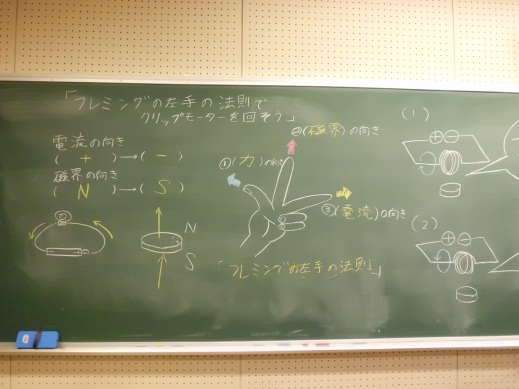 「フレミングの左手の法則で
クリップモーターを回そう」
電流の向き
( + )→( − )
磁界の向き
( N )→( S )
N
S
②(磁界)の向き
①(力)の向き
③(電流)の向き
「フレミングの左手の法則」
(1)
+ −
(2)
+ −